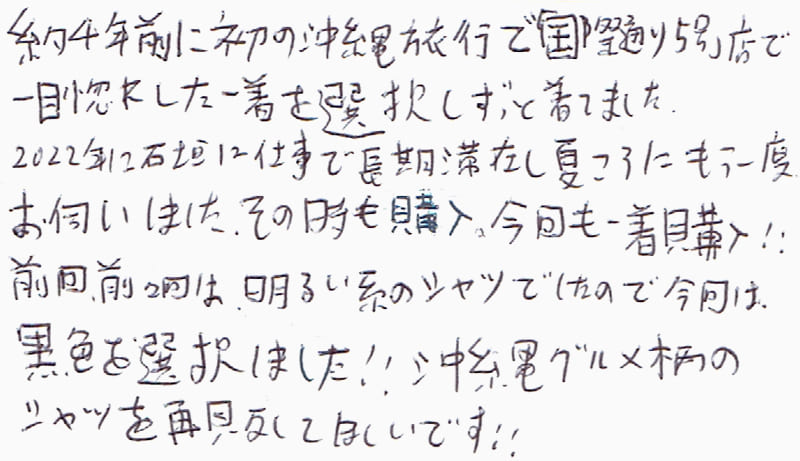 約4年前に初の沖縄旅行で国際通り5号店で
一目惚れした一着を選択しずっと着てました.
2022年に石垣に仕事で長期滞在し夏ころにもう一度
お伺いしました、その時も購入。今回も一着購入!!
前回、前々回は、明るい系のシャツでしたので今回は、
黒色を選択しました!!沖縄グルメ柄の
シャツを再販してほしいです!!